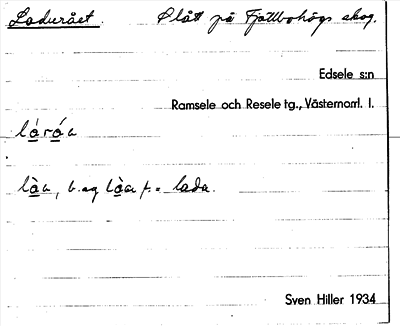 Laduråset. Slått på Fjällbohögs skog.
Edsele s:n
Ramsele och Resele tg., Västernorrl. l.
låråa
låa, b. sg låa f. = lada.
Sven Hiller 1934